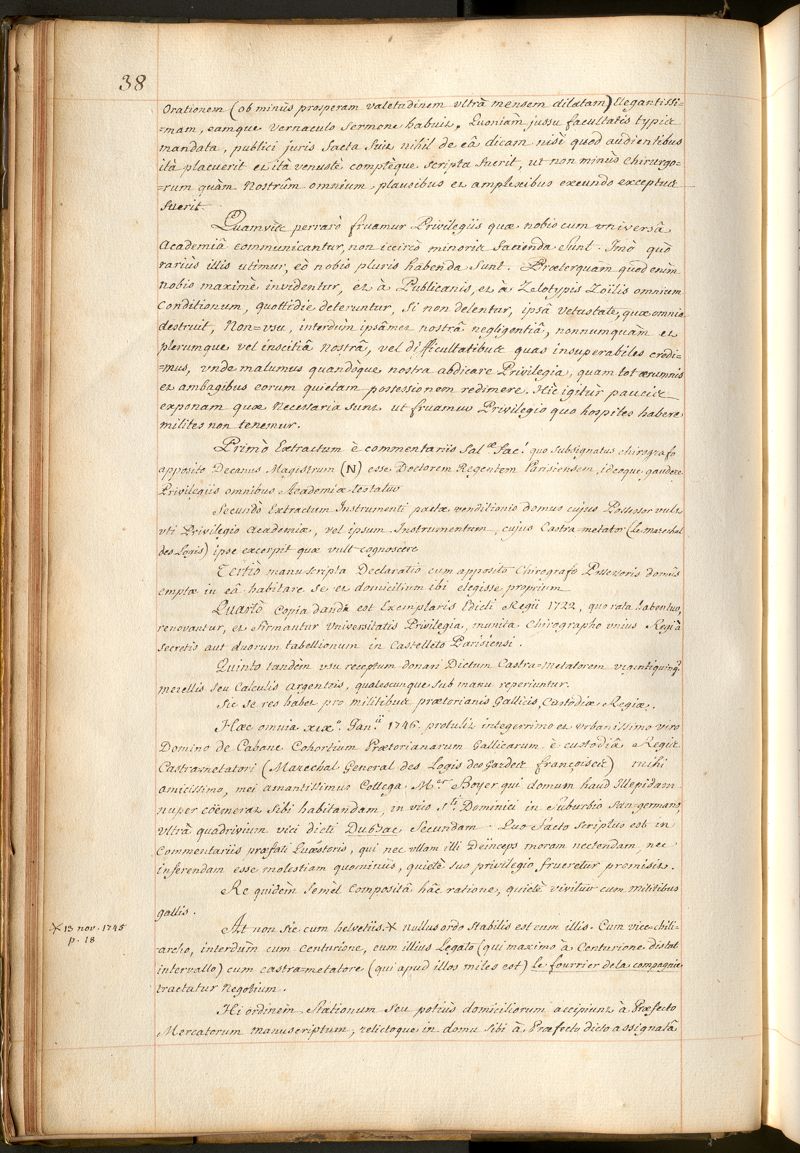 38
Orationem (ob minùs prosperam valetudinem vltrà mensem dilatam) Elegantissi=
=mam, eamque vernaculo sermone habuit. Quoniam jussu facultatis typis
mandata, publici juris facta fuit nihil de eâ dicam nisi quod audientibus
ità placuerit et ità venustè comptèque scripta fuerit, ut non minùs chirurgo=
=rum quàm nostrûm omnium plausibus et amplexibus exeundo exceptus
fuerit.
Quamvis perrarò fruamur Privilegiis quæ nobis cum vniversâ
Academiâ communicantur, non iccircò minoris facienda sunt. Imò quò
rariùs illis utimur, eò nobis pluris habenda sunt. Præterquam quod enim
nobis maximè invidentur, et à Publicanis, et à Zelotypis Zoïlis omnium
conditionum, quottidie deteruntur, si non delentur, ipsâ vetustate, quæ omnia
destruit, Non=vsu, interdùm ipsâmet nostrâ negligentiâ, nonnumquàm et
plerumque vel inscitiâ nostrâ, vel difficultatibus quas insuperabiles credi=
=mus, vnde malumus quandòque nostra abdicare Privilegia, quam tot ærumnis
et ambagibus eorum quietam possessionem redimere. Hîc igitur paucis
exponam quæ necessaria sunt ut fruamur Privilegio quo hospites habere
milites non tenemur.
Primò Extractum è commentariis Sal.æ Fac.t quo subsignatus chirografo
apposito Decanus Magistrum (N) esse Doctorem Regentem Parisiensem, ideoque gaudere
Privilegiis omnibus Academiæ testatur
Secundò Extractum Instrumenti pactæ venditionis domus cujus Possessor vult
vti Privilegio Academiæ, vel ipsum Instrumentum, cujus Castra-metator (Le marechal
des Logis) ipse excerpit quæ vult cognoscere
Tertiò manuscripta Declaratio cum apposito Chirografo Possessoris domûs
emptæ in eâ habitare se et domicilium ibi elegisse proprium
Quartò Copia danda est Exemplaris Edicti Regii 1722, quo rata habentur,
renovantur, et firmantur Universitatis Privilegia, munita Chirographo vnius Regi à
secretis aut duorum tabellionum in Castelleto Parisiensi.
Quinto tandèm vsu receptum donari Dictum Castra=metatorem viginti quinq;
merellis seu Calculis argenteis, qualescunque sub manu reperiuntur.
Sic se res habet pro militibus prætorianis Gallicis Custodiæ Regiæ.
Hæc omnia XIXº. Jan.ii 1746. protuli integerrimo et vrbanissimo viro
Domino de Cabane Cohortium Prætorianarum Gallicarum è custodiâ Regis
Castra=metatori (Marechal General des Logis des Gardes françoises) mihi
amicissimo, mei amantissimus Collega M.er Boyer qui domum haud Illepidam
nuper coëmerat sibi habitandam, in vico S.ti Dominici in Suburbio San-germano,
vltrà quadrivium vici dicti Du Bac secundam. Quo facto scriptus est in
Commentariis præfati Quæstoris, qui nec vllam illi Deïnceps moram nectendam, nec
inferendam esse molestiam quominùs, quietè suo privilegio frueretur promisit.
Re quidem semel compositâ hâc ratione, quietè vivitur cum militibus
gallis.
At non sic cum helvetiis. ⚹ nullus ordo stabilis est cum illis. Cum vice=chili=
archo, interdùm cum Centurione, cum illius Legato (qui maximo à Centurione distat
intervallo) cum castra=metatore (qui apud illos miles est) Le fourrier de la compagnie
tractatur negotium.
Hi ordinem Stationum seu potiùs domiciliorum accipiunt à Præfecto
Mercatorum manuscriptum, relictoque in domu sibi à Præfecto dicto assignatâ
⚹ 13 nov. 1745
p. 18